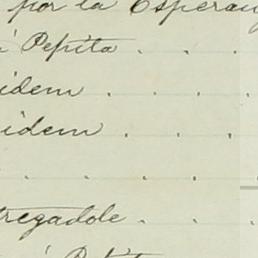 por la Esperan
á Pepita . . .
idem . . .
idem . . .
. . . .
tregadole . . .
á Pepita